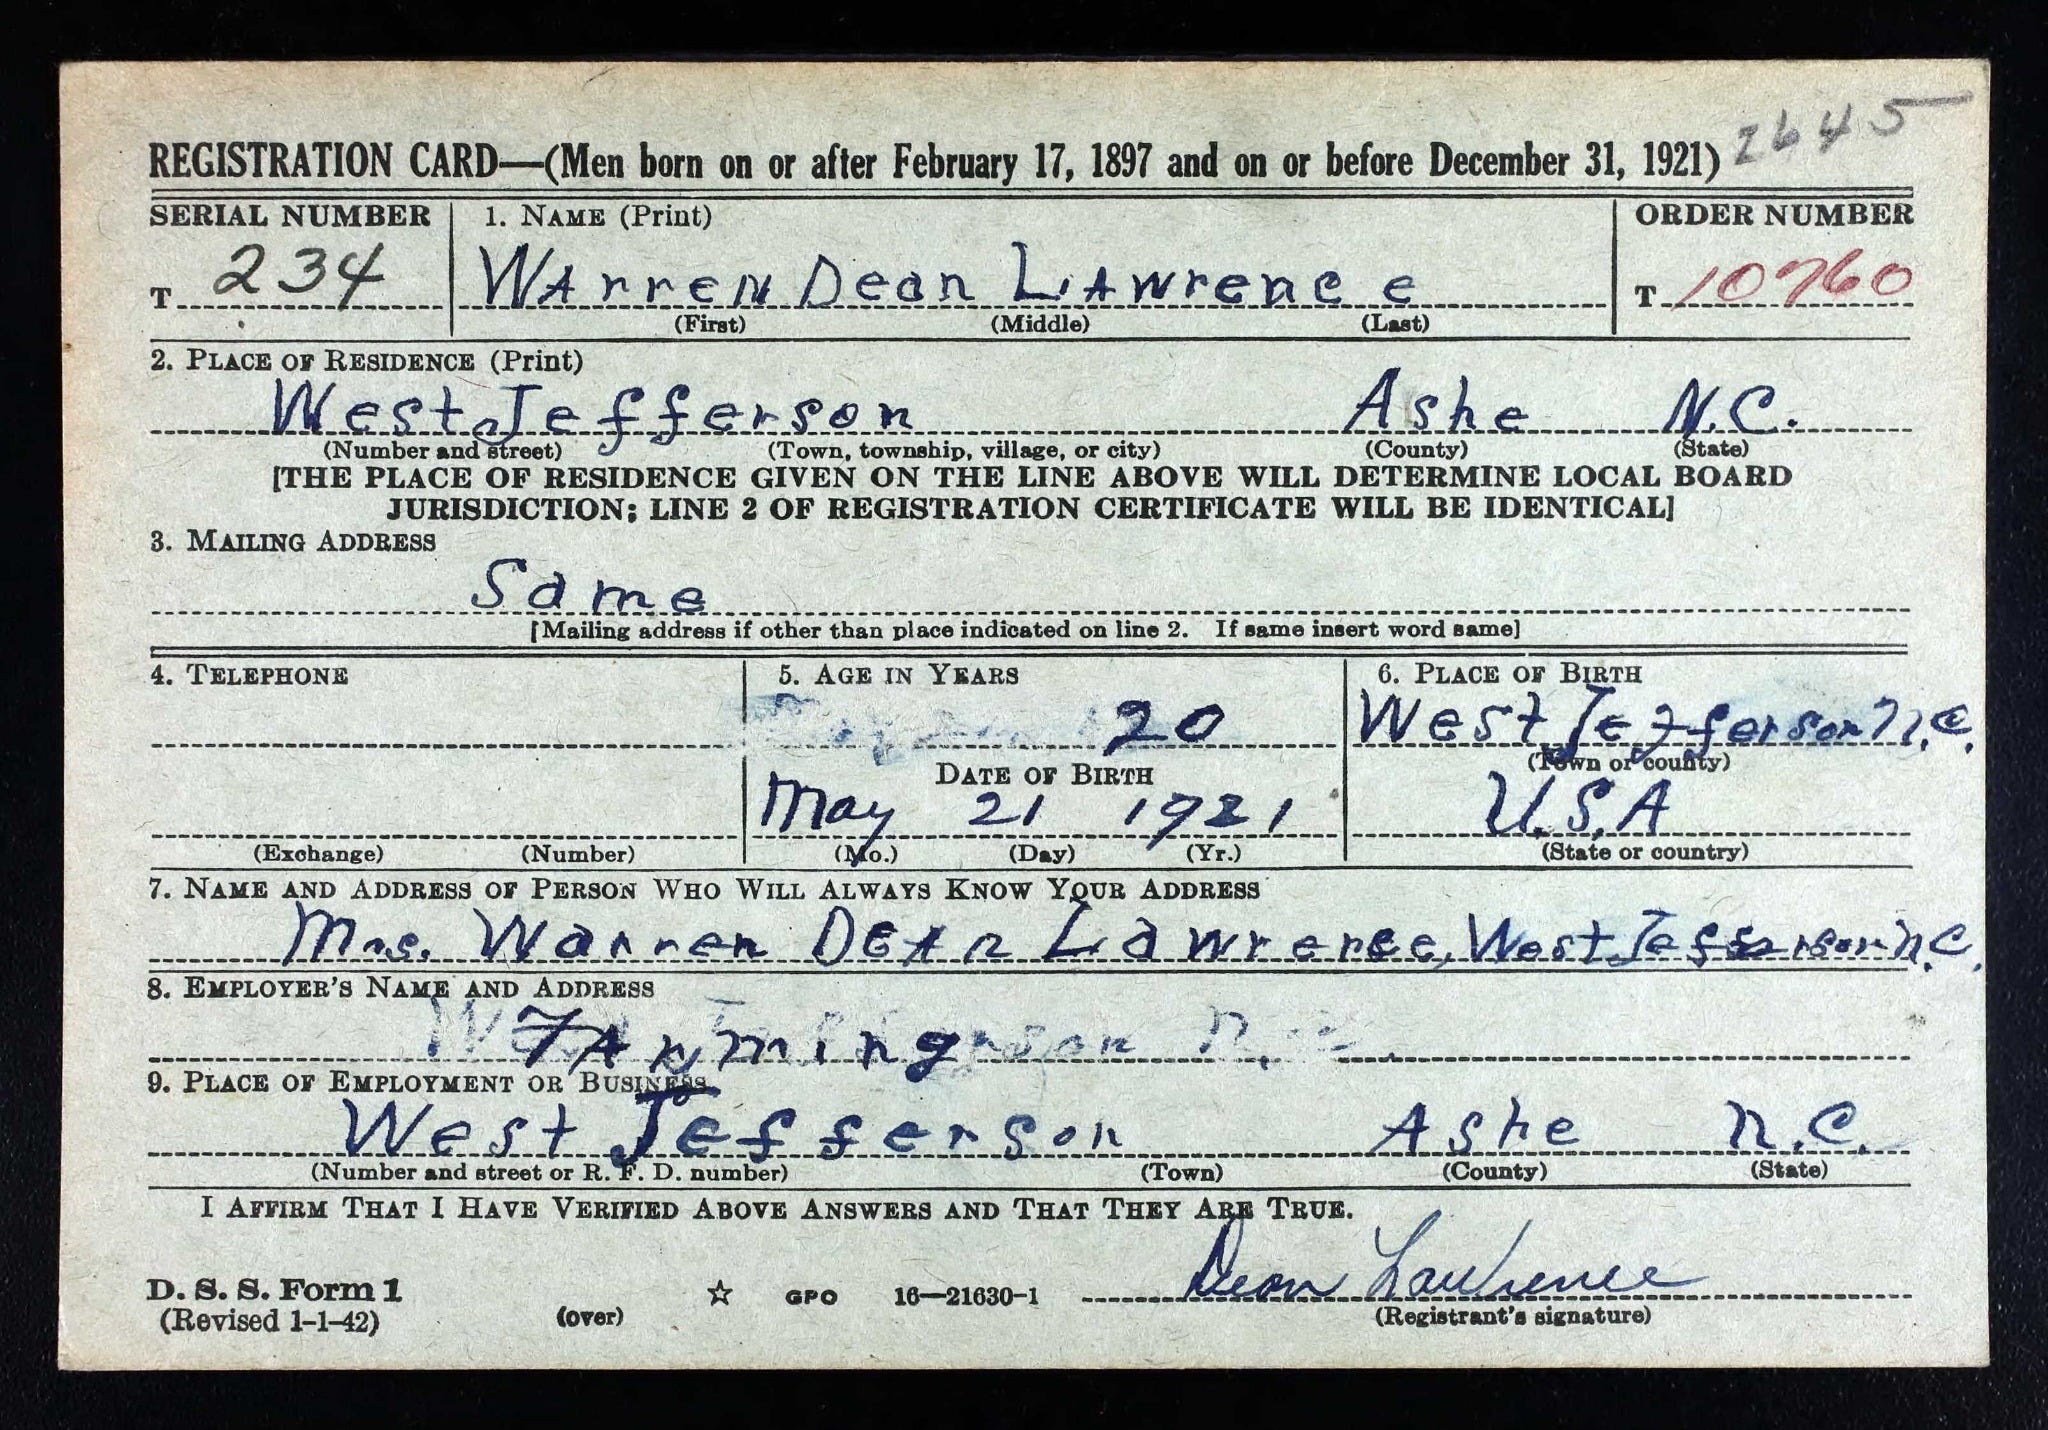 2645
REGISTRATION CARD—(Men born on or after February 17, 1897 and on or before December 31, 1921)
SERIAL NUMBER 1. NAME (Print) ORDER NUMBER
T 234 WArren Dean LAwrence T 10760
(First) (Middle) (Last)
2. PLACE OF RESIDENCE (Print)
West Jefferson Ashe N.C.
(Number and street) (Town, township, village, or city) (County) (State)
[THE PLACE OF RESIDENCE GIVEN ON THE LINE ABOVE WILL DETERMINE LOCAL BOARD
JURISDICTION; LINE 2 OF REGISTRATION CERTIFICATE WILL BE IDENTICAL]
3. MAILING ADDRESS
Same
[Mailing address if other than place indicated on line 2. If same insert word same]
4. TELEPHONE 5. AGE IN YEARS 6. PLACE OF BIRTH
20 West Jefferson N.C.
(Town or county)
DATE OF BIRTH
May 21 1921 U.S.A
(Exchange) (Number) (Mo.) (Day) (Yr.) (State or country)
7. NAME AND ADDRESS OF PERSON WHO WILL ALWAYS KNOW YOUR ADDRESS
Mrs. Warren DEAn Lawrence, West Jefferson N.C.
8. EMPLOYER'S NAME AND ADDRESS
FArming
9. PLACE OF EMPLOYMENT OR BUSINESS
West Jefferson Ashe N.C.
(Number and street or R. F. D. number) (Town) (County) (State)
I AFFIRM THAT I HAVE VERIFIED ABOVE ANSWERS AND THAT THEY ARE TRUE.
Dean Lawrence
D. S. S. Form 1 ☆ GPO 16—21630-1
(Revised 1-1-42) (over) (Registrant's signature)